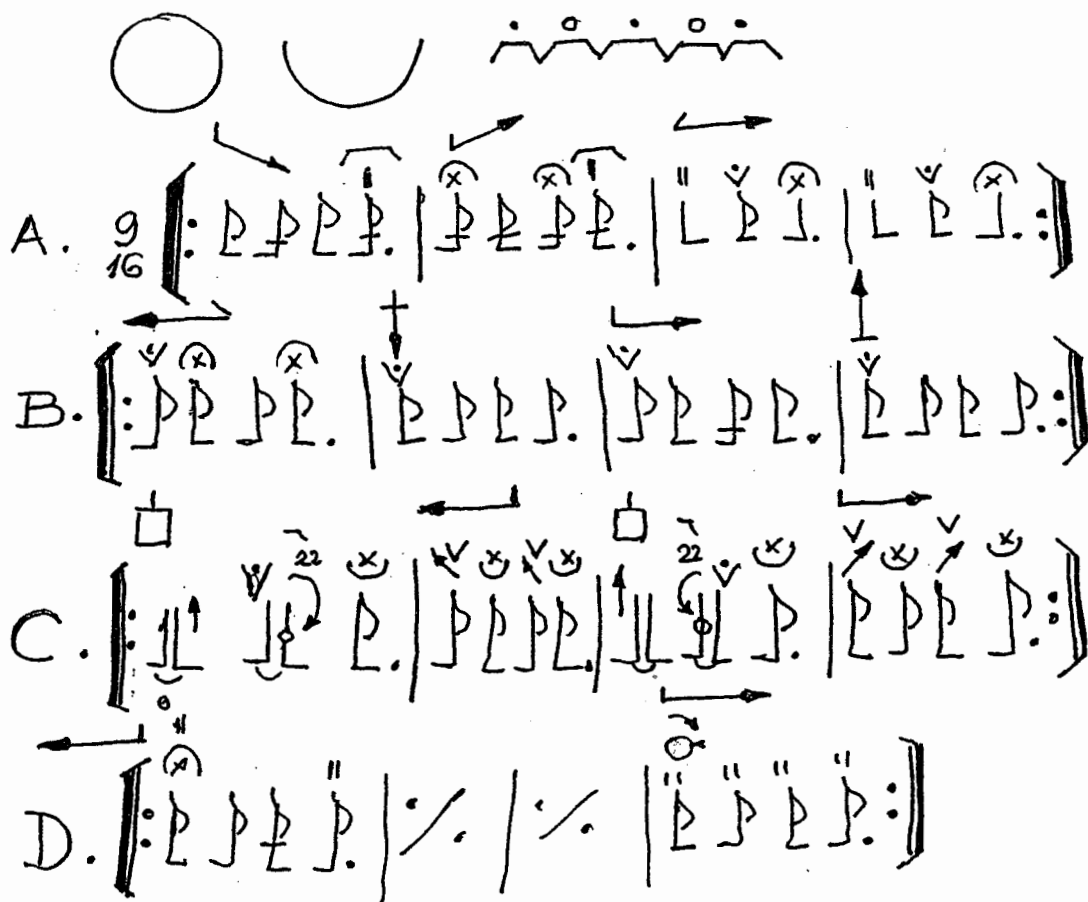 A. 9/16
B.
22 22
C.
D.